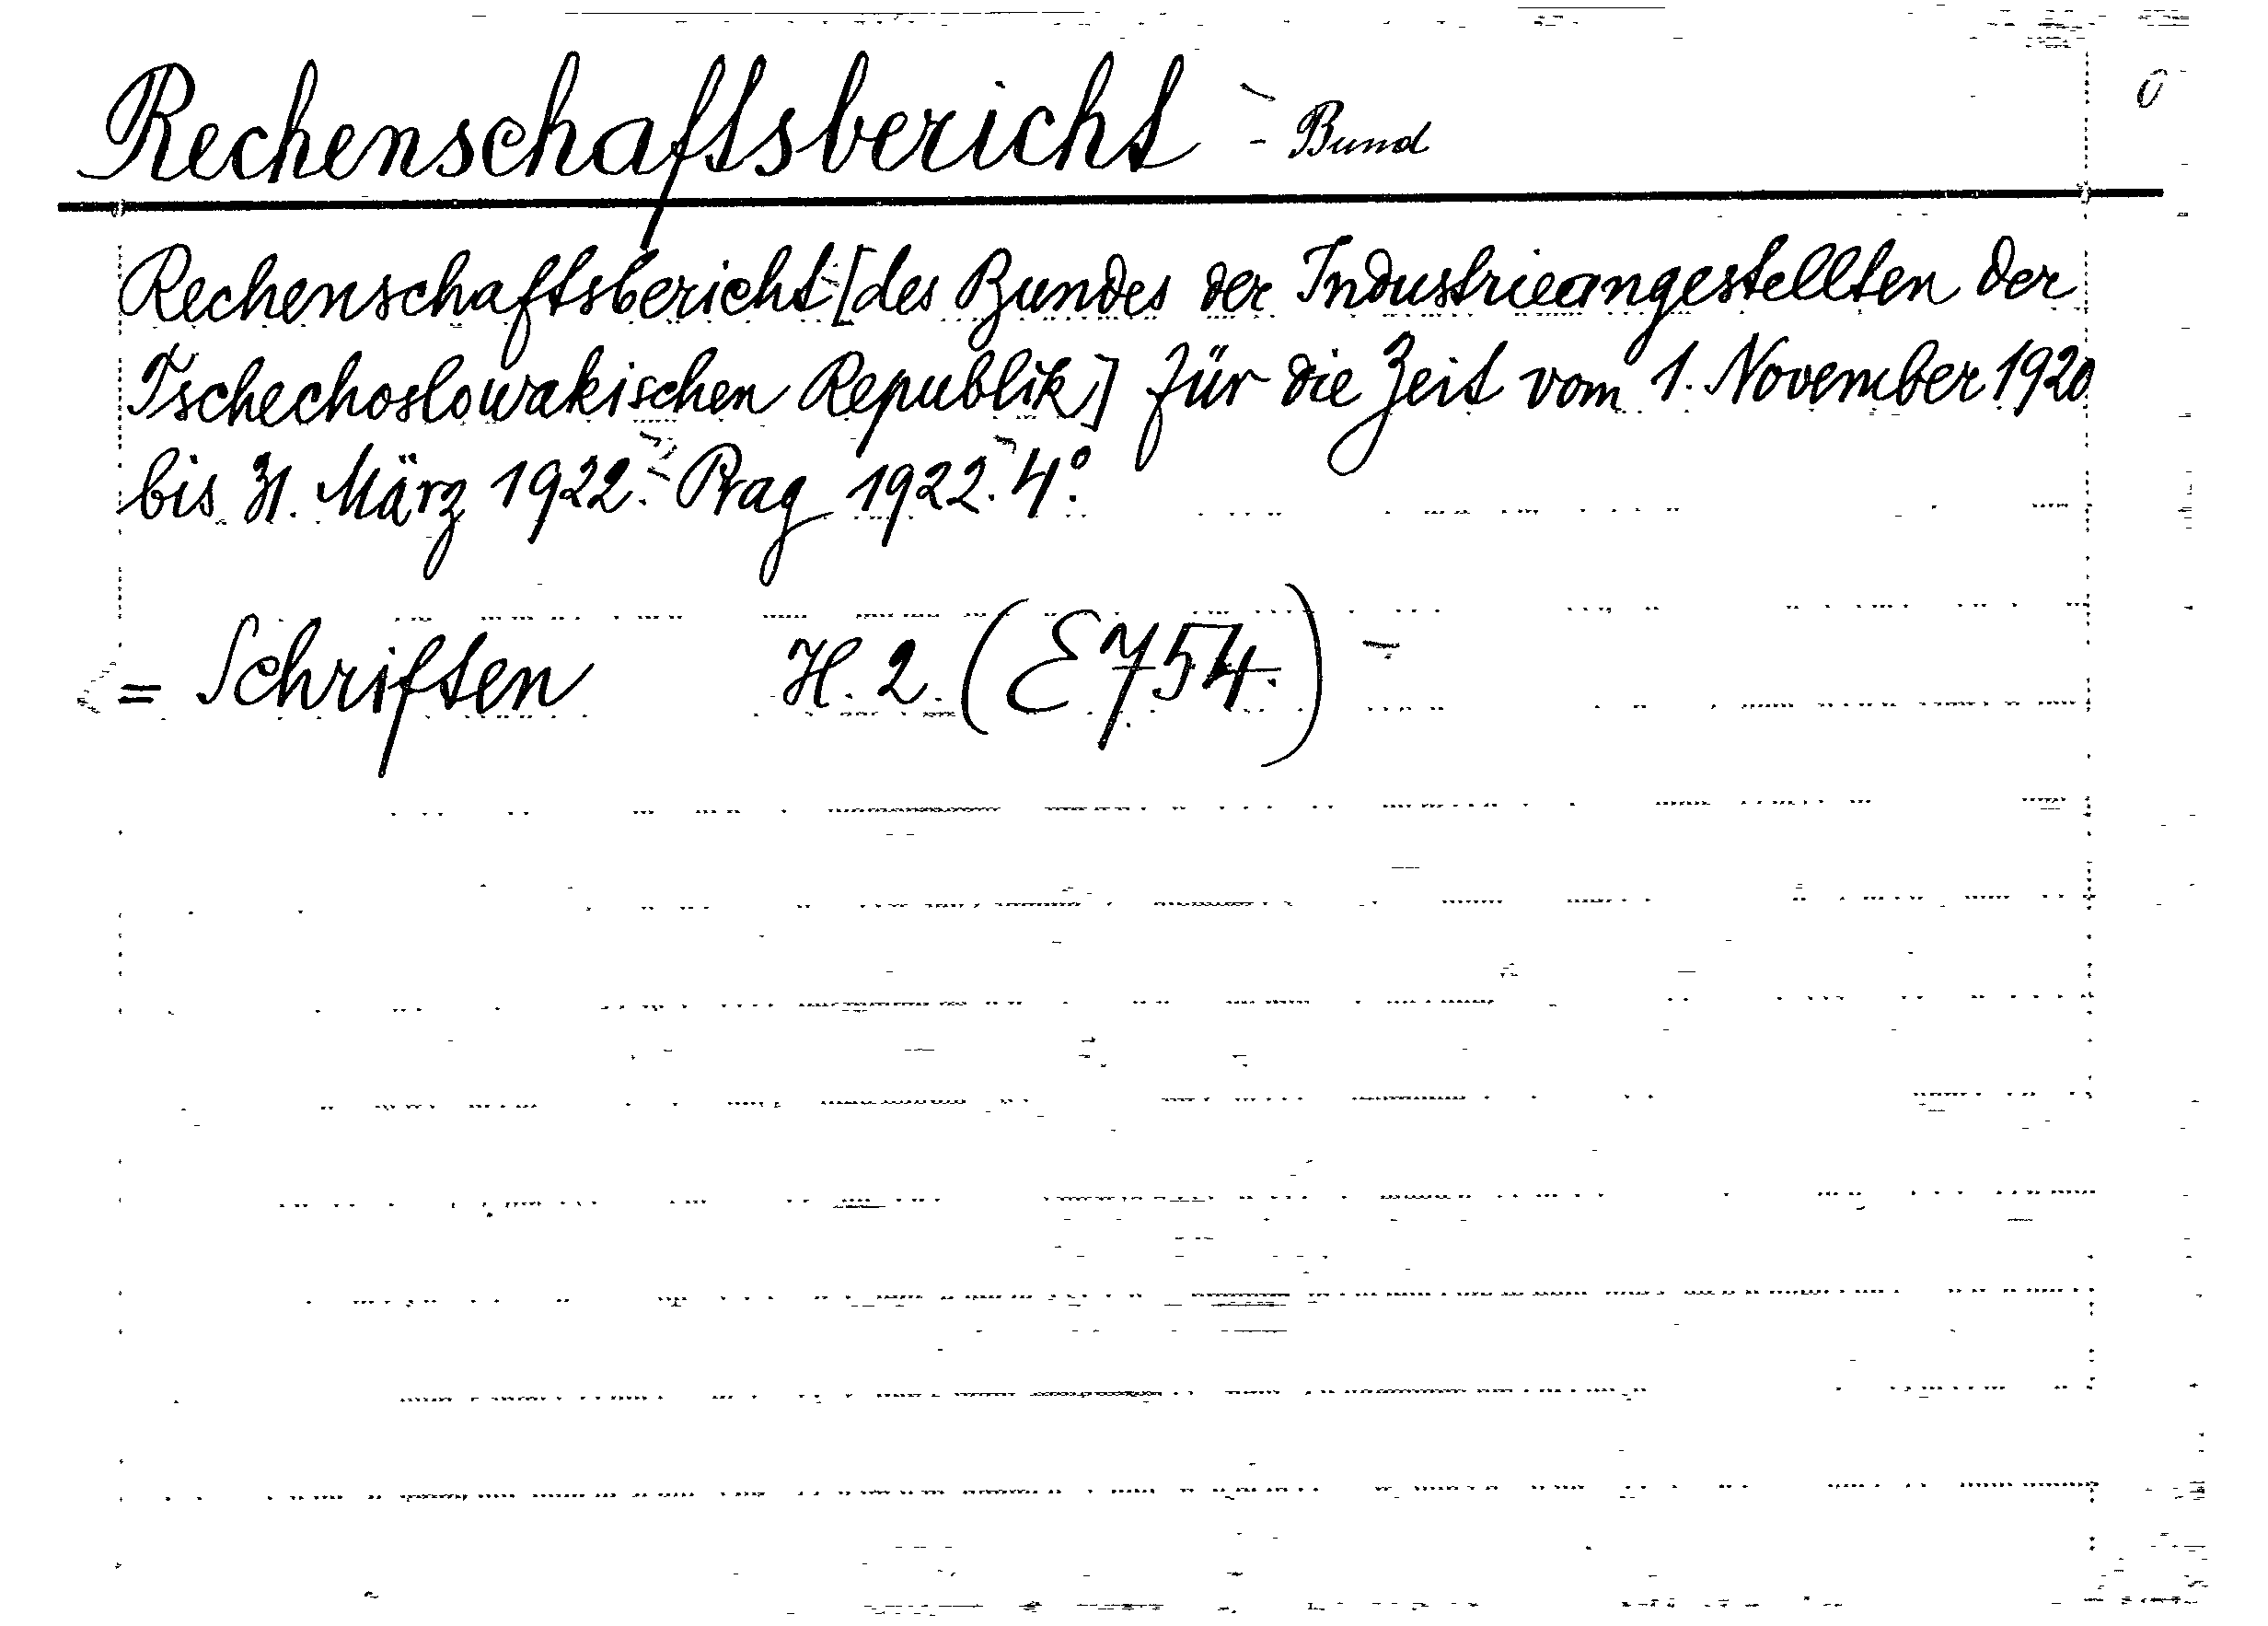 Rechenschaftsbericht - Bund
Rechenschaftsbericht [des Bundes der Industrieangestellten der
Tschechoslowakischen Republik] für die Zeit vom 1. November 1920
bis 31. März 1922. Prag 1922. 4°.
= Schriften H. 2. (E 754.)